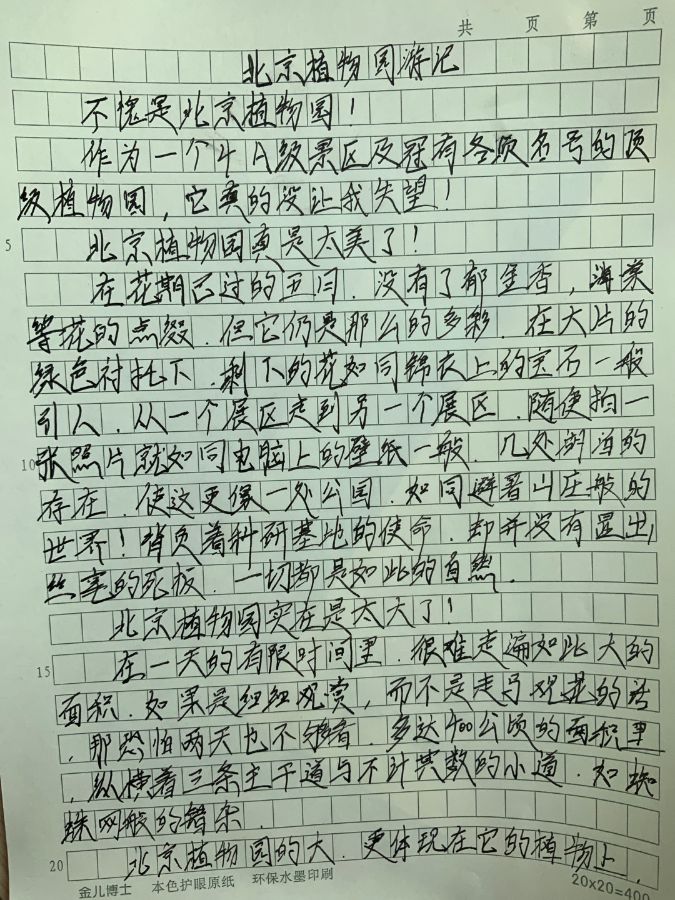 共 页 第 页
北京植物园游记
不愧是北京植物园！
作为一个4A级景区及冠有各项名号的顶
级植物园，它真的没让我失望！
5 北京植物园真是太美了！
在花期已过的五月．没有了郁金香，海棠
等花的点缀．但它仍是那么的多彩．在大片的
绿色衬托下．剩下的花如同锦衣上的宝石一般
引人．从一个展区走到另一个展区．随便拍一
10 张照片就如同电脑上的壁纸一般．几处湖泊的
存在．使这更像一处公园．如同避暑山庄般的
世界！背负着科研基地的使命．却并没有显出
丝毫的死板．一切都是如此的自然．
北京植物园实在是太大了！
15 在一天的有限时间里．很难走遍如此大的
面积．如果是细细观赏，而不是走马观花的话
，那恐怕两天也不够看．多达400公顷的面积里
，纵横着三条主干道与不计其数的小道．如蜘
蛛网般的错杂．
20 北京植物园的大．更体现在它的植物上．
金儿博士 本色护眼原纸 环保水墨印刷 20x20=400